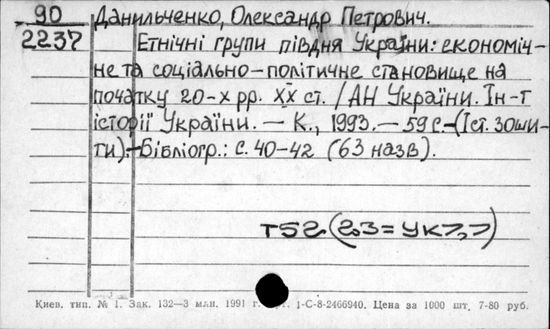 90 Данильченко, Олександр Петрович.
2237 Етнічні групи півдня України: економіч-
не та соціально-політичне становище на
початку 20-х рр. XX ст. / АН України. Ін-т
історії України. — К., 1993. — 59 с. — (Іст. зоши-
ти). — Бібліогр.: с. 40-42 (63 назв).
Т52(2,3=Ук7,7)
Киев. тип. № 1. Зак. 132—3 млн. 1991 г. 1-С-8-2466940. Цена за 1000 шт. 7-80 руб.